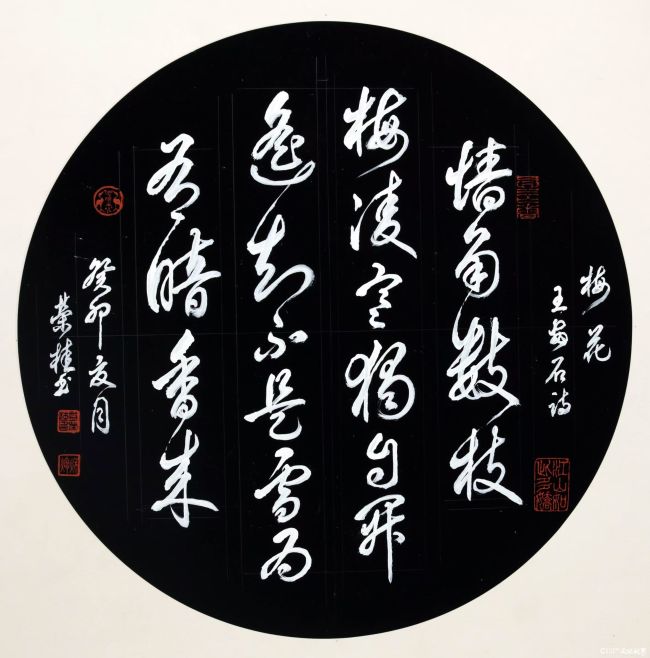 梅花
王安石诗
墙角数枝
梅凌寒独自开
遥知不是雪为
有暗香来
癸卯夏月
荣桂书
江山如此多娇